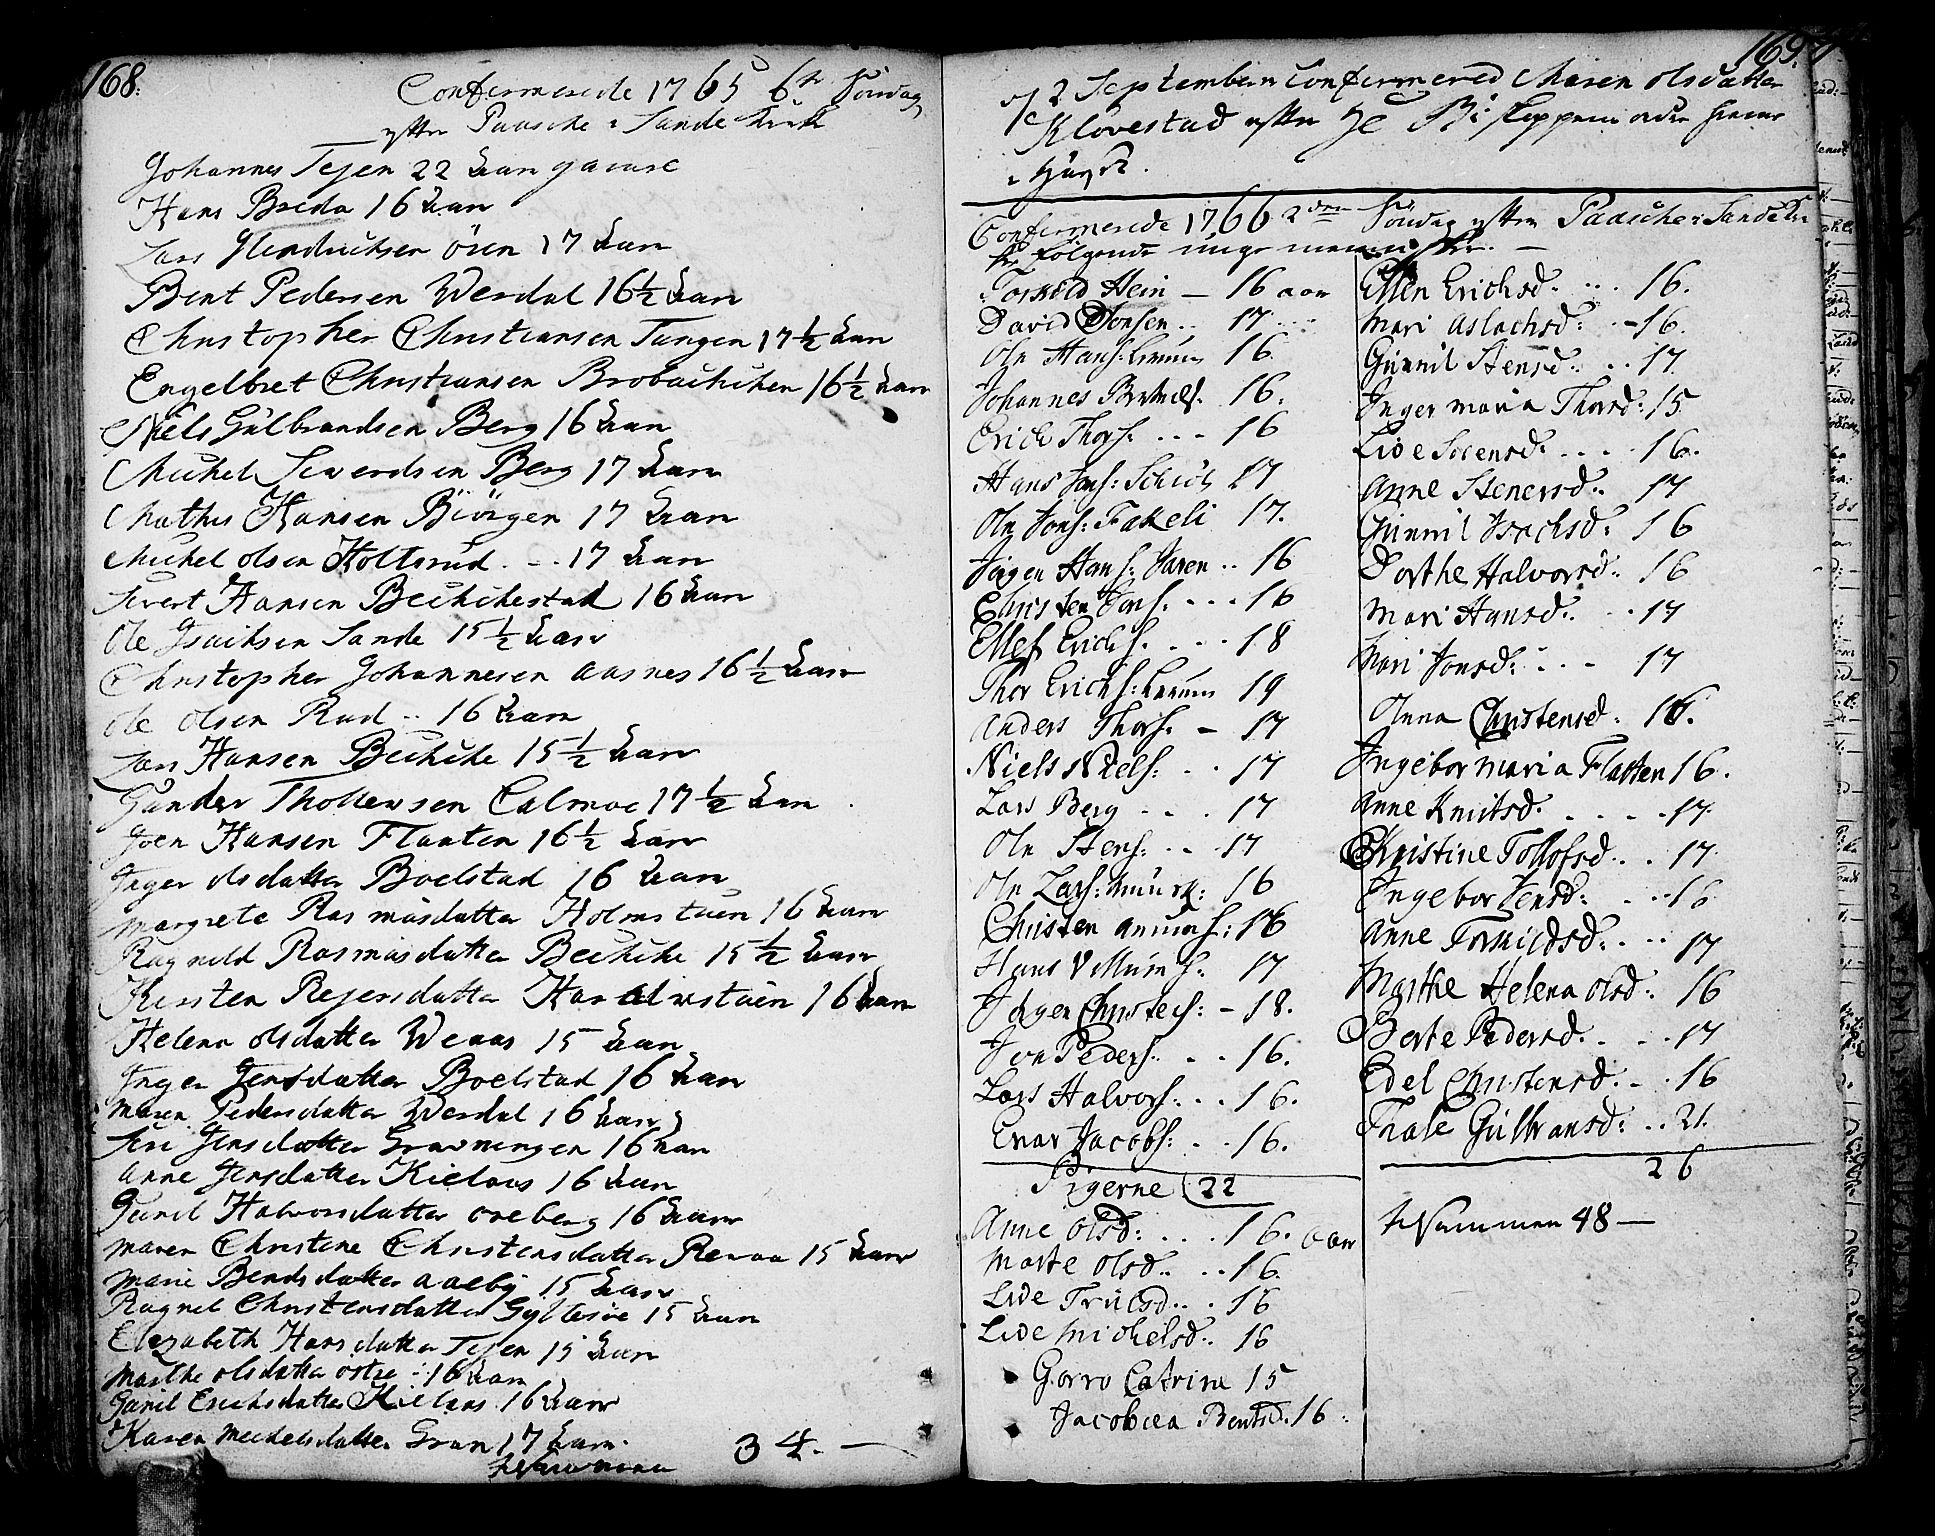 168.
Confirmerede 1765 6te Söndag
efter Paasche i Sande Kirke
Johannes Tejen 22 aar gamal
Hans Breda 16 aar
Lars Hendrichsen ören 17 aar
Bent Pedersen Werdal 16 1/2 aar
Christopher Christiansen Tangen 17 1/2 aar
Engelbret Christiansen 16 1/2 aar
Niels Gulbrandsen Berg 16 aar
Michel Siverdsen Berg 17 aar
Mathis Hansen Biörgen 17 aar
Michel olsen Holtsrud . - . 17 aar
Sivert Hansen Bechchestad 16 aar
Ole Isachsen Sande 15 1/2 aar
Christopher Johannesen aasnes 16 1/2 aar
ole olsen Rud .. 16 aar
Lars Hansen Bechche 15 1/2 aar
Gunder Thollevsen 17 1/2 aar
Joen Hansen Flaaten 16 1/2 aar
Inger olsdatter Boelstad 16 aar
margrete Rasmusdatter Holmstuen 16 aar
Ragnild Rasmusdatter Bechche 15 1/2 aar
Kirsten Rejersdatter 16 aar
Helena olsdatter Weaas 15 aar
Inger Jensdatter Boelstad 16 aar
maren Pedersdatter Werdal 16 aar
Siri Jensdatter Gravningen 16 aar
anne Jensdatter Kielaas 16 aar
Gunil Halvorsdatter oreberg 16 aar
maren Christine Christensdatter Revaa 15 aar
marie Bendsdatter aaeby 15 aar
Ragnil Christensdatter 15 aar
Elizabeth Hansdatter Tejen 15 aar
marthe olsdatter östre .. 16 aar
Gunil Erichsdatter Kielaas 16 aar
Karen michelsdatter Gran 17 aar.
tilsammen 34. —
169.
2 September confirmered Maren olsdatter
Klövestad efter Biskoppens
Confirmerede 1766 2den Söndag efter Paasche i Sande
fölgende unge mennisker. —
Torkild Hein — 16 aar
David Jonsen .. 17 ...
Ole Hans: 16.
Johannes 16.
Erich Thors: ... 16
Hans Jens: 17
Ole Jons: Fakeli 17.
Jörgen Hans: Jaren .. 16
Christen Jons: ... 16
Ellef Erichs: ... 18
Thor Erichs: 19
anders Thors: — 17
Niels Niels: .. 17
Lars Berg ... 17
Ole Stens: ... 17
Ole Lars: 16
Christen : 16
Hans 17
Jörgen Christens: — 18.
Jon Peders: .. 16.
Lars Halvors: .. 16.
Enar Jacobs: .. 16.
Pigerne 22
Anne olsd: ... 16. aar
Marte olsd: .. 16.
Live Trulsd: . 16
Live michelsd: 16
Gorro Catrina 15
Jacobea Bentsd. 16.
Ellen Erichsd: ... 16.
Mari Aslachsd: .. 16.
Gunnil Stensd: .. 17.
Inger maria Thorsd: 15
Live Sorensd: .... 16.
Anne Stenersd: 17
Gunnil Isachsd: 16
Dorthe Halvorsd: 16
Mari Hansd: .. 17
Mari Jonsd: ... 17
Anna Christensd: 16.
Ingebor maria Flatten 16.
Anne Knutsd. .... 17.
Christine Tollofsd: . 17
Ingebor Jensd: .. 16
Anne Torkildsd: ... 17
Myrthe Helena olsd: 16
Berte Pedersd: ... 17
Edel Christensd: .. 16
Thale Gulbransd: .. 21.
26
tilsammen 48 —